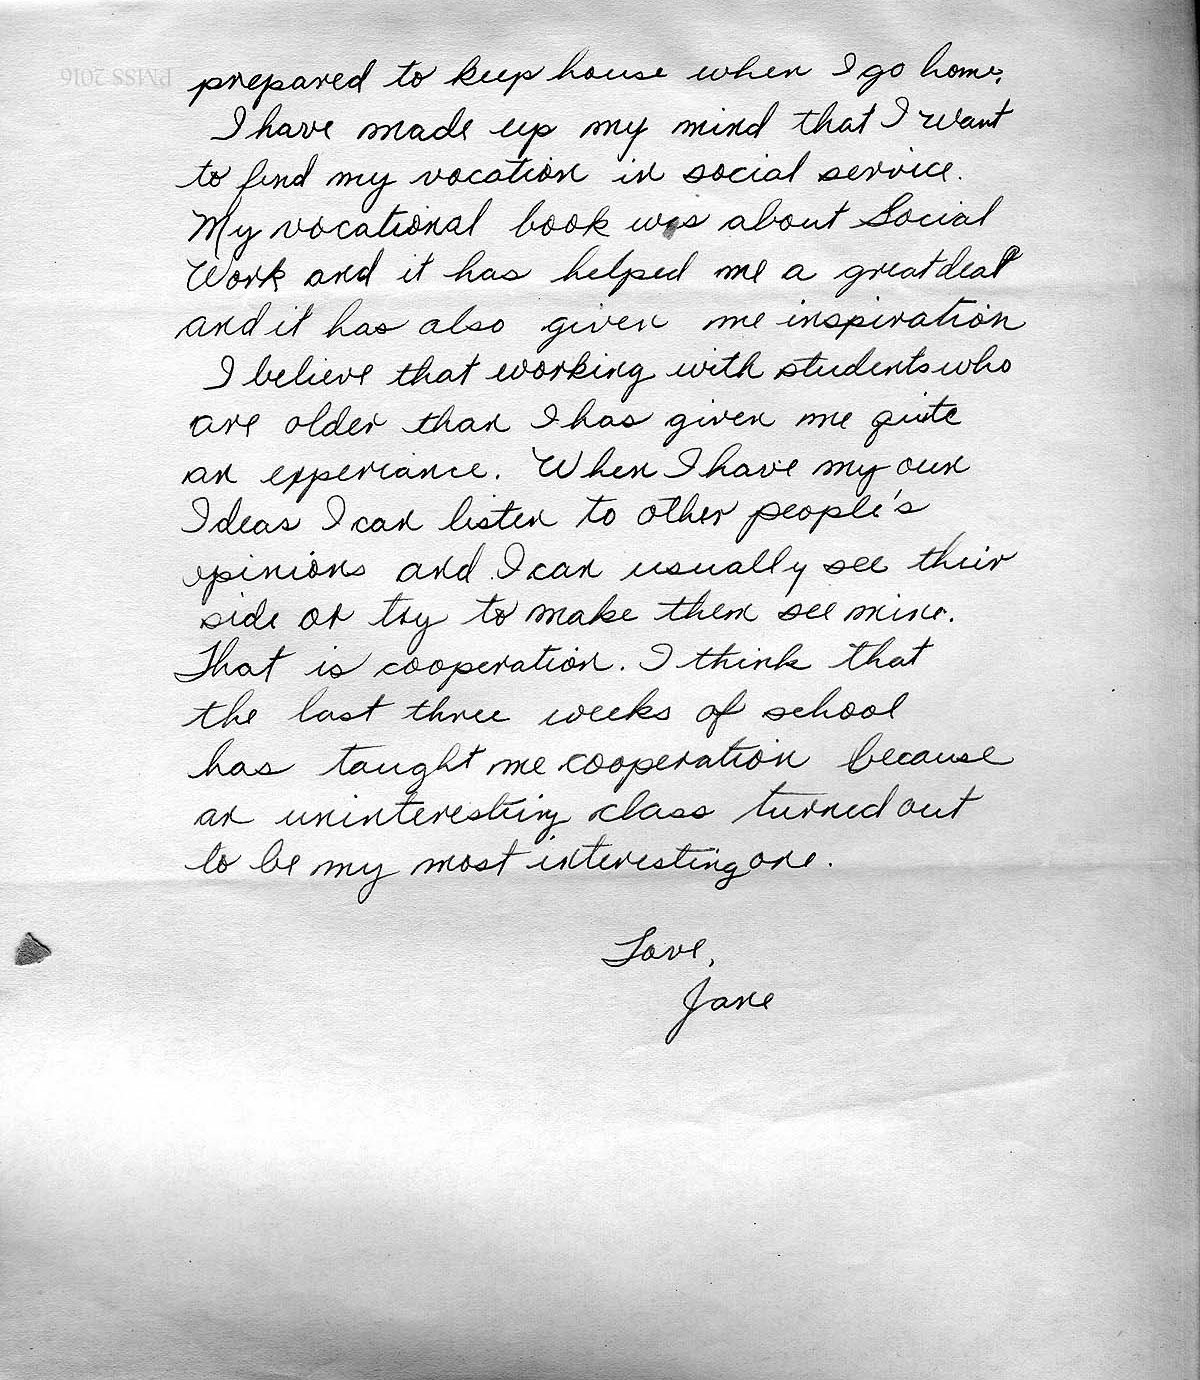 PMSS 2016
prepared to keep house when I go home.
I have made up my mind that I want
to find my vocation in social service.
My vocational book was about Social
Work and it has helped me a great deal
and it has also given me inspiration
I believe that working with students who
are older than I has given me quite
an experiance. When I have my own
Ideas I can listen to other people's
opinions and I can usually see their
side or try to make them see mine.
That is cooperation. I think that
the last three weeks of school
has taught me cooperation because
an uninteresting class turned out
to be my most interesting one.
Love,
Jane